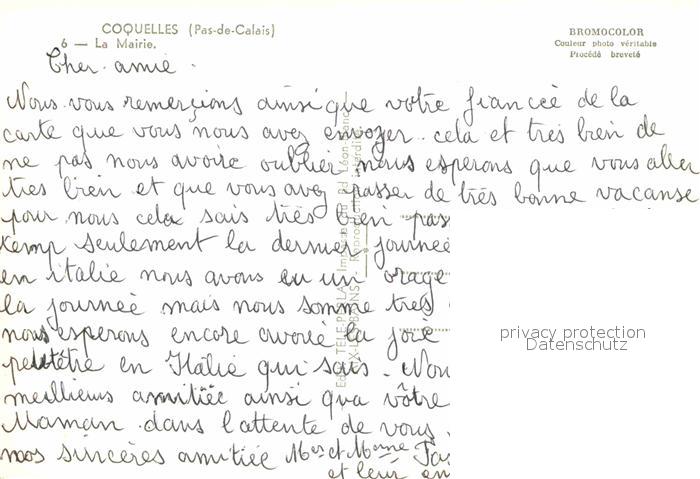 COQUELLES (Pas-de-Calais)
6 — La Mairie.
BROMOCOLOR
Couleur photo véritable
Procédé breveté
Cher amie.
Nous vous remerçions ainsi que votre fianceé de la
carte que vous nous avez envozer. cela et tres bien de
ne pas nous avoire oublier nous esperons que vous aller
tres bien et que vous avez passer de très bonne vacanse
pour nous cela sais très bien pas
temp seulement la dernier journeé
en italie nous avons eu un orage
la journeé mais nous somme tres
nous esperons encore avoire la joie
peutêtre en Italie qui sais. Nou
meillieurs amitiée ainsi qua vôtre
Maman dans l'attente de vous
nos sincères amitiée Mer et Meme
et leur en
privacy protection
Datenschutz